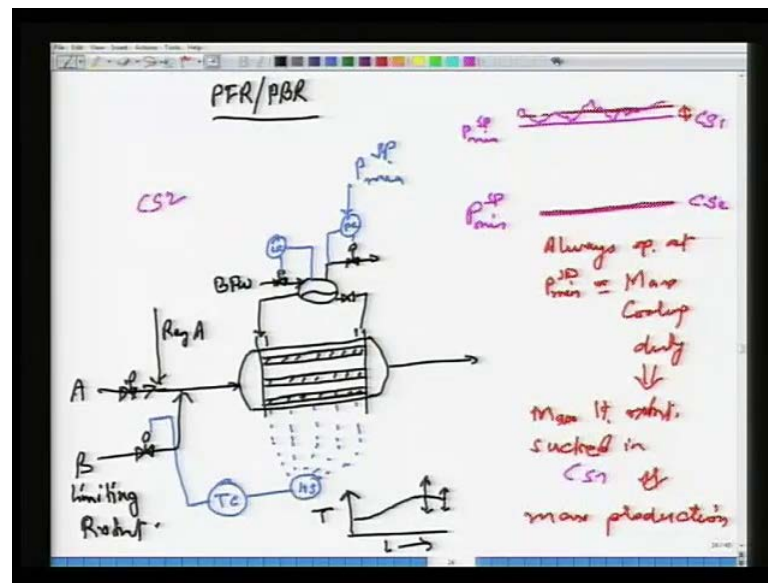 File Edit View Insert Actions Tools Help
PFR/PBR
CS2
P SP min
LC
PC
BFW
Rcy A
A
B
limiting
TC
HS
T
L →
P SP min
CS1
P SP min
CS2
Always op. at
P SP min = Max
Cooling
duty
⇓
Max lt. rctnt.
sucked in
CS1
max production